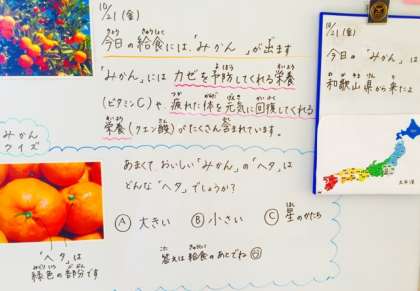 10/21 (金)
今日の給食には、「みかん」が出ます
「みかん」には カゼを予防してくれる栄養
(ビタミンC)や、疲れた体を元気に回復してくれる
栄養(クエン酸)がたくさん含まれています。
みかん
クイズ
あまくて、おいしい「みかん」の"ヘタ"は
どんな"ヘタ"でしょうか?
Ⓐ 大きい Ⓑ 小さい Ⓒ 星のかたち
答えは給食のあとでね
"ヘタ"は
緑色の部分です
10/21 (金)
今日の「みかん」は
和歌山県から来たよ